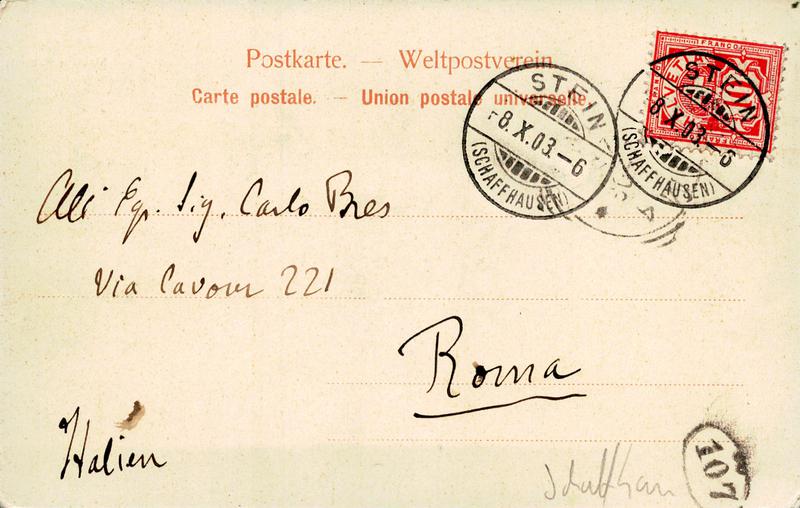 Postkarte. — Weltpostverein.
Carte postale. — Union postale universelle.
FRANCO
10
STEIN
8.X.03.–6
(SCHAFFHAUSEN)
STEIN
8.X.03.–6
(SCHAFFHAUSEN)
Sig. Carlo Bres
Via Cavour 221
Roma
Italien
107